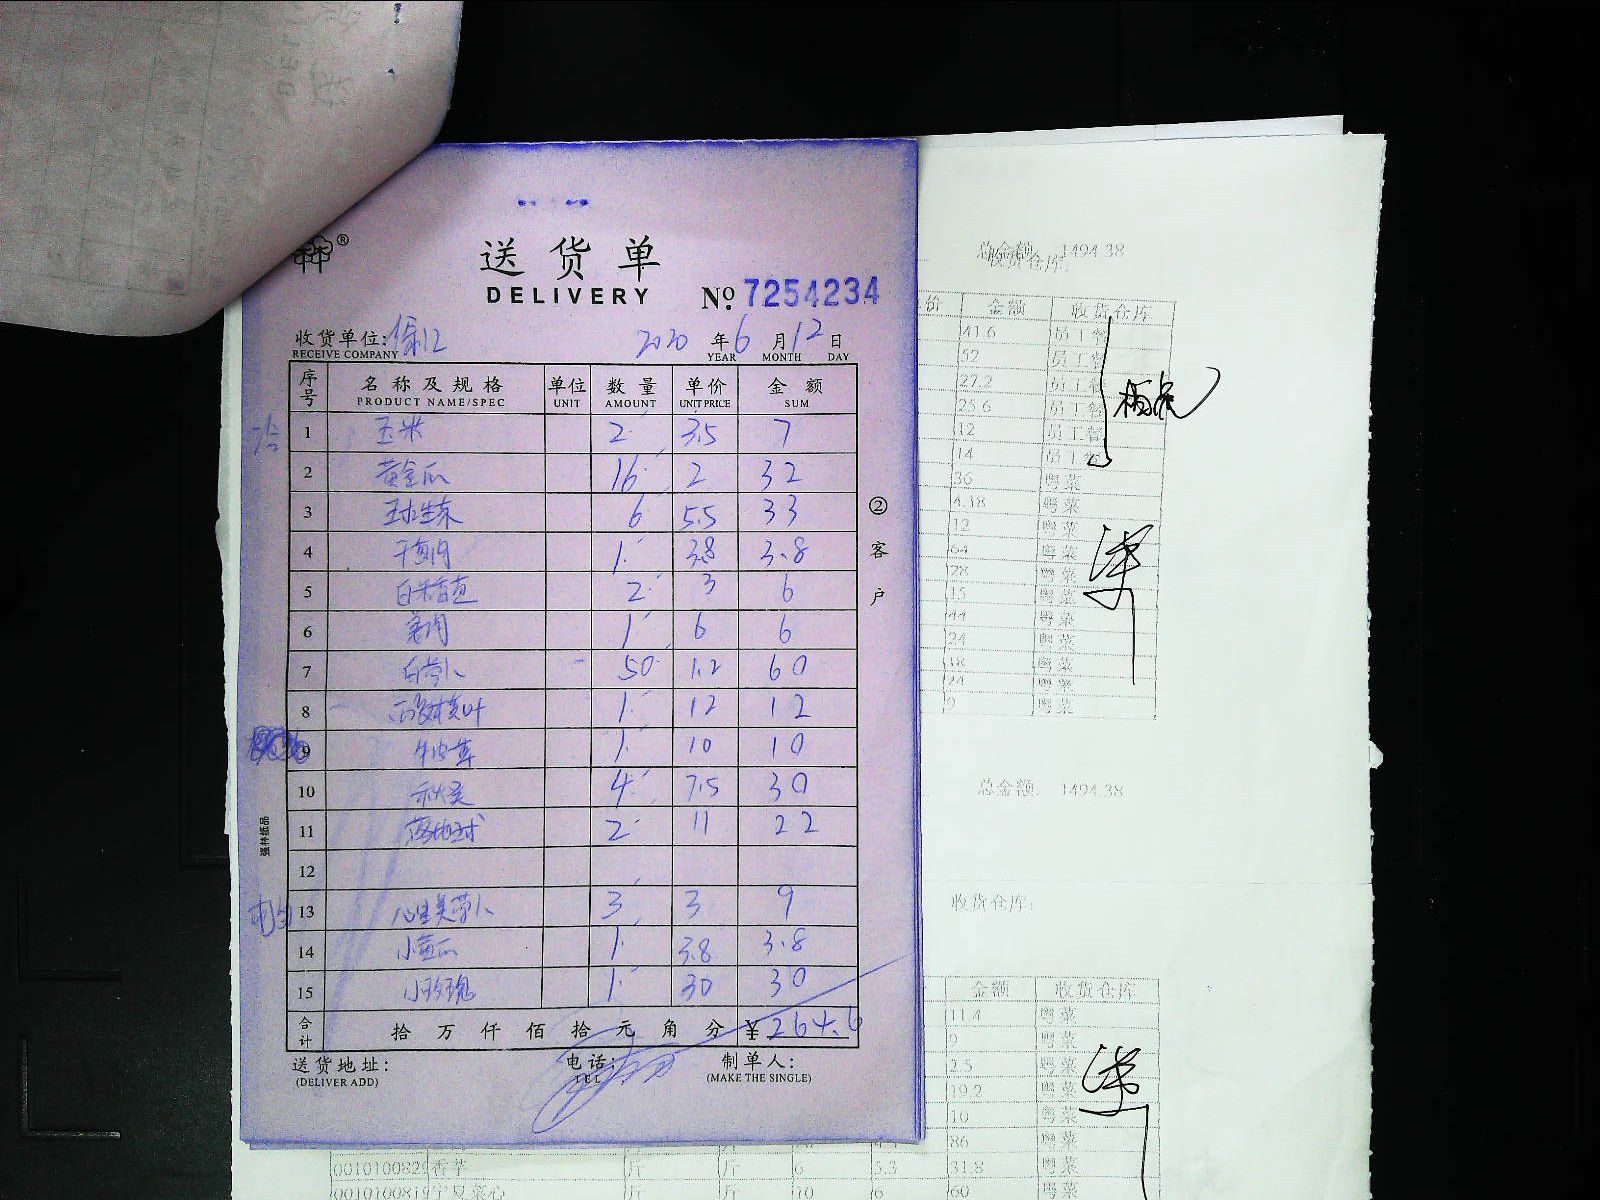 送货单
DELIVERY
№ 7254234
收货单位: 2020 年 6 月 12 日
RECEIVE COMPANY YEAR MONTH DAY
序号 名称及规格 单位 数量 单价 金额
PRODUCT NAME/SPEC UNIT AMOUNT UNIT PRICE SUM
1 玉米 2 3.5 7
2 黄金瓜 16 2 32
3 球生菜 6 5.5 33
4 1 3.8 3.8
5 2 3 6
6 1 6 6
7 白萝卜 50 1.2 60
8 1 12 12
9 1 10 10
10 秋葵 4 7.5 30
11 2 11 22
12
13 心里美萝卜 3 3 9
14 小黄瓜 1 3.8 3.8
15 小玫瑰 1 30 30
合计 拾万仟佰拾元角分 ¥ 264.6
送货地址: 电话: 制单人:
(DELIVER ADD) TEL (MAKE THE SINGLE)
②客户
强林纸品
总金额: 1494.38
收货仓库:
价 金额 收货仓库
41.6 员工餐
52 员工餐
27.2 员工餐
25.6 员工餐
12 员工餐
14 员工餐
36 粤菜
4.18 粤菜
12 粤菜
64 粤菜
28 粤菜
15 粤菜
44 粤菜
24 粤菜
18 粤菜
24 粤菜
9 粤菜
总金额: 1494.38
收货仓库:
金额 收货仓库
11.4 粤菜
9 粤菜
2.5 粤菜
19.2 粤菜
10 粤菜
86 粤菜
0010100829 香芋 斤 斤 6 5.3 31.8 粤菜
0010100819 宁夏菜心 斤 斤 10 6 60 粤菜